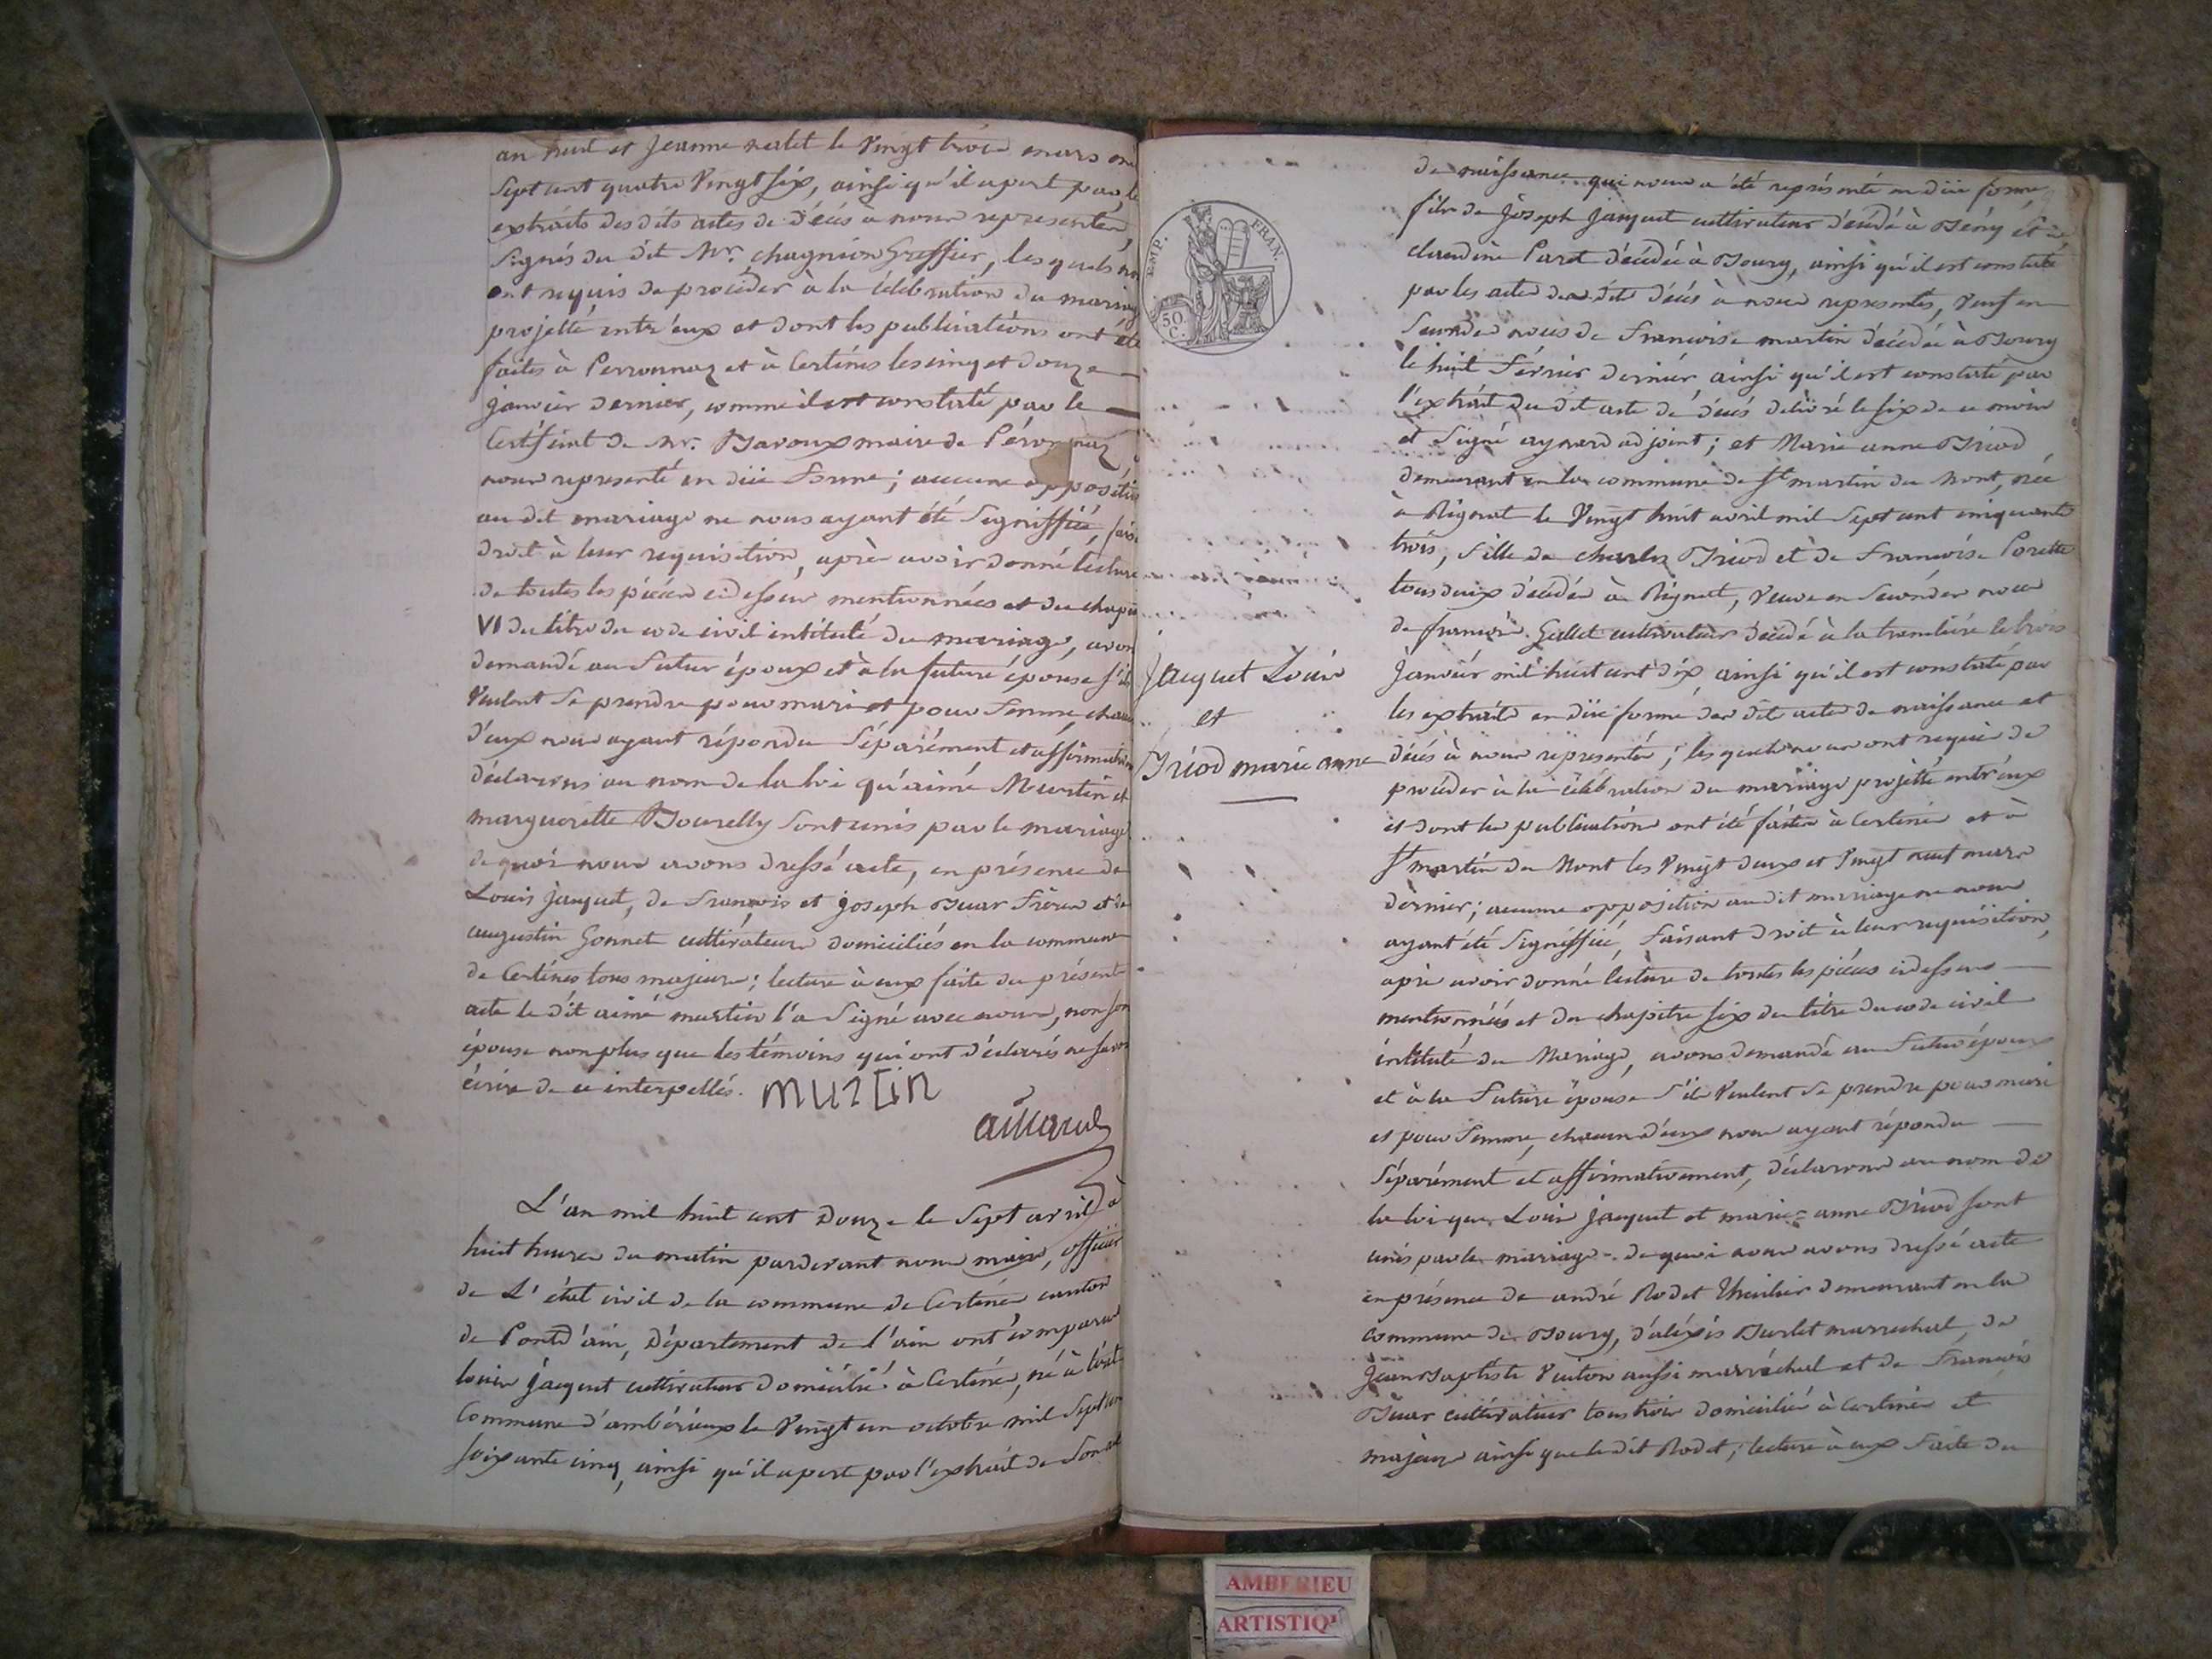 an huit et Jeanne nalet le Vingt trois mars mil
Sept cent quatre Vingt six, ainsi qu'il apert par le
extraits des dits actes de décès à nous representer,
Signés du dit Mr. chagnion Greffier, lesquels nous
ont requis de procéder à la célébration du mariage
projetté entr'eux et dont les publications ont été
faites à Perronnaz et à Certines les cinq et douze
Janvier dernier, comme il est constaté par le
Certificat de Mr. Bavoux maire de Péronnaz
nous representé en düe forme ; aucune opposition
au dit mariage ne nous ayant été Signiffiée, fais
droit à leur requisition, après avoir donné lecture
de toutes les pièces cidessus mentionnées et du chapit
VI du titre du code civil intitulé du mariage, avon
demandé au futur époux et à la future épouse s'il
Veulent Se prendre pour mari et pour femme, chacun
d'eux nous ayant répondu Séparément et affirmativem
déclarons au nom de la loi qu'aimé Martin et
marguerite Bourelly Sont unis par le mariage
de quoi nous avons dressé acte, en présence de
Louis Jacquet, de François et Joseph Buar frères et de
augustin Gonnet cultivateurs domiciliés en la commune
de Certines tous majeurs ; lecture à eux faite du présent
acte le dit aimé martin l'a Signé avec nous, non son
épouse non plus que les témoins qui ont déclarés ne savoir
écrire de ce interpellés. martin
L'an mil huit cent Douze le Sept avril à
huit heures du matin pardevant nous maire, officier
de L'état civil de la commune de Certines canton
de Pontd'ain, Département de l'ain ont comparu
louis Jacquet cultivateur domicilié à Certines, né à
Commune d'ambérieux le Vingt un octobre mil Sept cen
soixante cinq, ainsi qu'il apert par l'extrait de Son act
EMP. FRAN.
50 C.
Jacquet Louis
et
Briod marie anne
de naissance qui nous a été représenté en düe forme,
fils de Joseph Jacquet cultivateur décédé à Bény et de
claudine Parot décédée à Bourg, ainsi qu'il est constaté
par les actes des dits décès à nous representés, Veuf en
Secondes noces de Francoise martin décédée à Bourg
le huit Février dernier ainsi qu'il est constaté par
l'extrait du dit acte de décès delivré le six de ce mois
et Signé aynard adjoint ; et Marie anne Briod
demeurant en la commune de St martin du Mont, née
à Rignat le Vingt huit avril mil Sept cent cinquante
trois, fille de charles Briod et de Francoise Porette
tous deux décédés à Rignat, Veuve en Secondes noces
de françois Gallet cultivateur décédé à la tranclière le trois
Janvier mil huit cent dix ainsi qu'il est constaté par
les extraits en düe forme des dits actes de naissance et
décès à nous representés ; lesquels nous ont requis de
procéder à la célébration du mariage projetté entr'eux
et dont les publications ont été faites à Certines et à
St martin du Mont les Vingt deux et Vingt neuf mars
dernier ; aucune opposition au dit mariage ne nous
ayant été Signiffiée, faisant droit à leur requisition,
après avoir donné lecture de toutes les pièces cidessus
mentionnées et du chapitre six du titre du code civil
intitulé du Mariage, avons demandé au futur époux
et à la Future épouse S'ils Veulent Se prendre pour mari
et pour femme, chacun d'eux nous ayant répondu
Séparément et affirmativement, déclarons au nom de
la loi que Louis Jacquet et marie anne Briod sont
unis par le mariage - de quoi nous avons dressé acte
en présence de andré Rodet demeurant en la
commune de Bourg, d'aléxis Burlet marrechal, de
Jean Baptiste Vuiton aussi marréchal et de François
Buar cultivateur tous trois domiciliés à Certines et
majeurs ainsi que le dit Rodet ; lecture à eux faite du
AMBERIEU
ARTISTIQ